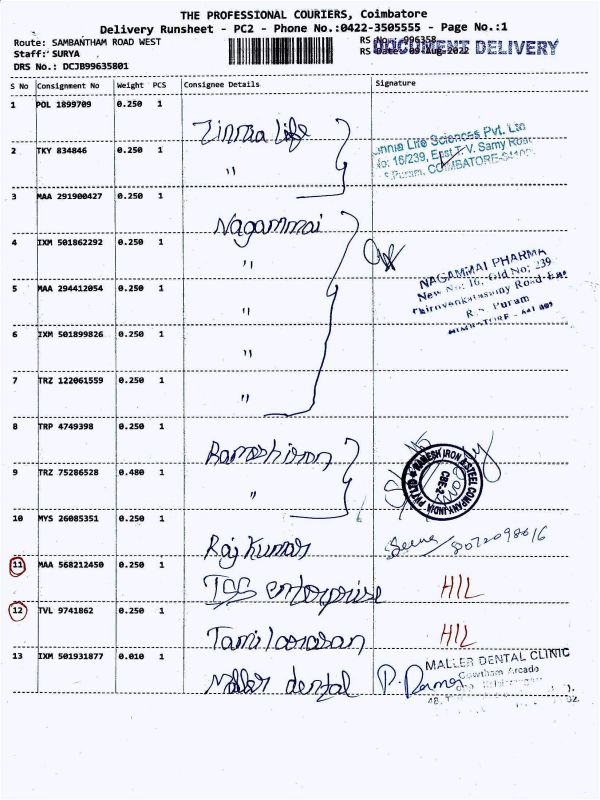 THE PROFESSIONAL COURIERS, Coimbatore
Delivery Runsheet - PC2 - Phone No.:0422-3505555 - Page No.:1
Route: SAMBANTHAM ROAD WEST
RS No.: 996358
Staff: SURYA
RS Date: 09-Aug-2022
DOCUMENT DELIVERY
DRS No.: DCJB99635801
S No Consignment No Weight PCS Consignee Details Signature
1 POL 1899709 0.250 1
Zinnia Life
2 TKY 834846 0.250 1
"
Zinnia Life Sciences Pvt. Ltd
No: 16/239, East T.V. Samy Road
R.S.Puram, COIMBATORE-
3 MAA 291900427 0.250 1
Nagammai
4 IXM 501862292 0.250 1
"
NAGAMMAI PHARMA
New No: 16, Old No: 239
Thiruvenkatasamy Road East
R.S. Puram
COIMBATORE - 641 002
5 MAA 294412054 0.250 1
"
6 IXM 501899826 0.250 1
"
7 TRZ 122061559 0.250 1
"
8 TRP 4749398 0.250 1
Ramesh iron
RAMESH IRON & STEEL COMPANY INDIA PVT LTD
CBE-2
9 TRZ 75286528 0.480 1
"
10 MYS 26085351 0.250 1
Raj Kumar
8072098616
11 MAA 568212450 0.250 1
TSS enterprise H1L
12 TVL 9741862 0.250 1
Tamilarasan H1L
13 IXM 501931877 0.010 1
Maller dental
MALLER DENTAL CLINIC
Gowtham Arcade